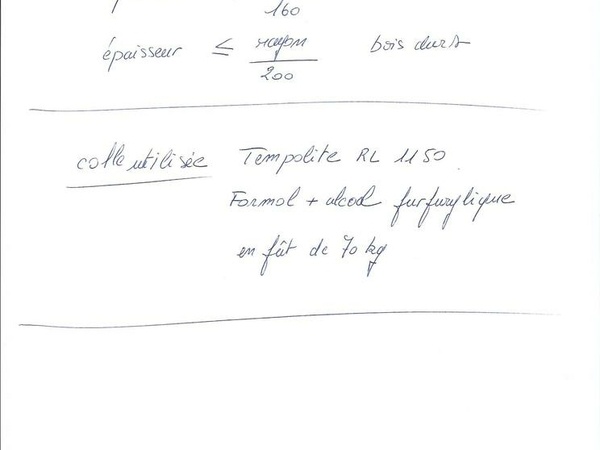 160
épaisseur ≤ rayon / 200 bois durs
colle utilisée Tempolite RL 1150
Formol + alcool furfurylique
en fût de 70 kg